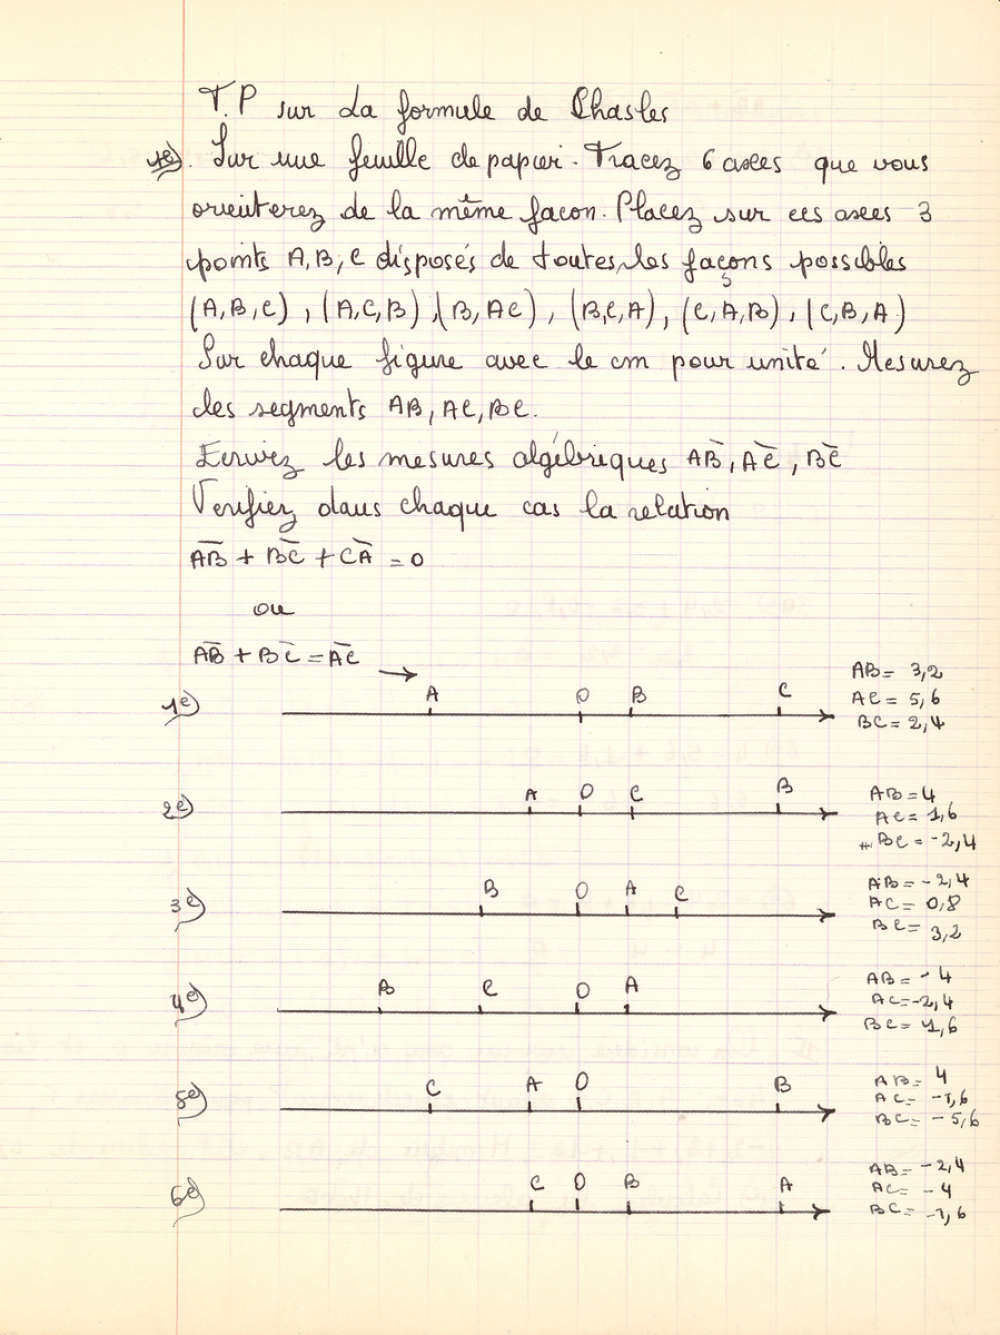 T.P sur La formule de Chasles
1e). Sur une feuille de papier. Tracez 6 axes que vous
orienterez de la même facon. Placez sur ces axes 3
points A, B, C disposés de toutes les façons possibles
(A,B,C), (A,C,B), (B,AC), (B,C,A), (C,A,B), (C,B,A)
Sur chaque figure avec le cm pour unité. Mesurez
les segments AB, AC, BC.
Ecrivez les mesures algébriques A̅B̅, A̅C̅, B̅C̅
Verifiez dans chaque cas la relation
A̅B̅ + B̅C̅ + C̅A̅ = 0
ou
A̅B̅ + B̅C̅ = A̅C̅ →
1e) A O B C
AB= 3,2
AC= 5,6
BC= 2,4
2e) A O C B
AB=4
AC= 1,6
BC= -2,4
3e) B O A C
AB= -2,4
AC= 0,8
BC= 3,2
4e) B C O A
AB= -4
AC=-2,4
BC= 1,6
5e) C A O B
AB= 4
AC= -1,6
BC= -5,6
6e) C O B A
AB= -2,4
AC= -4
BC= -1,6